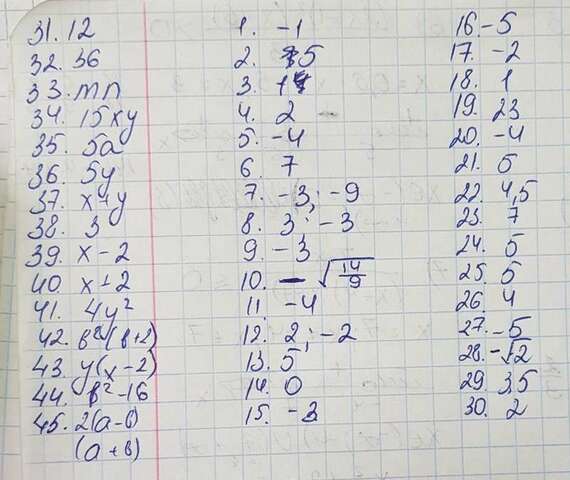 31. 12
32. 36
33. mn
34. 15xy
35. 5a
36. 5y
37. x+y
38. 3
39. x-2
40. x+2
41. 4y²
42. b²(b+2)
43. y(x-2)
44. b²-16
45. 2(a-b)
(a+b)
1. -1
2. 5
3. 14
4. 2
5. -4
6. 7
7. -3; -9
8. 3; -3
9. -3
10. √14/9
11 -4
12. 2; -2
13. 5
14. 0
15. -3
16. -5
17. -2
18. 1
19. 23
20. -4
21. 5
22. 4,5
23. 7
24. 5
25. 5
26. 4
27. -5
28. -√2
29. 35
30. 2